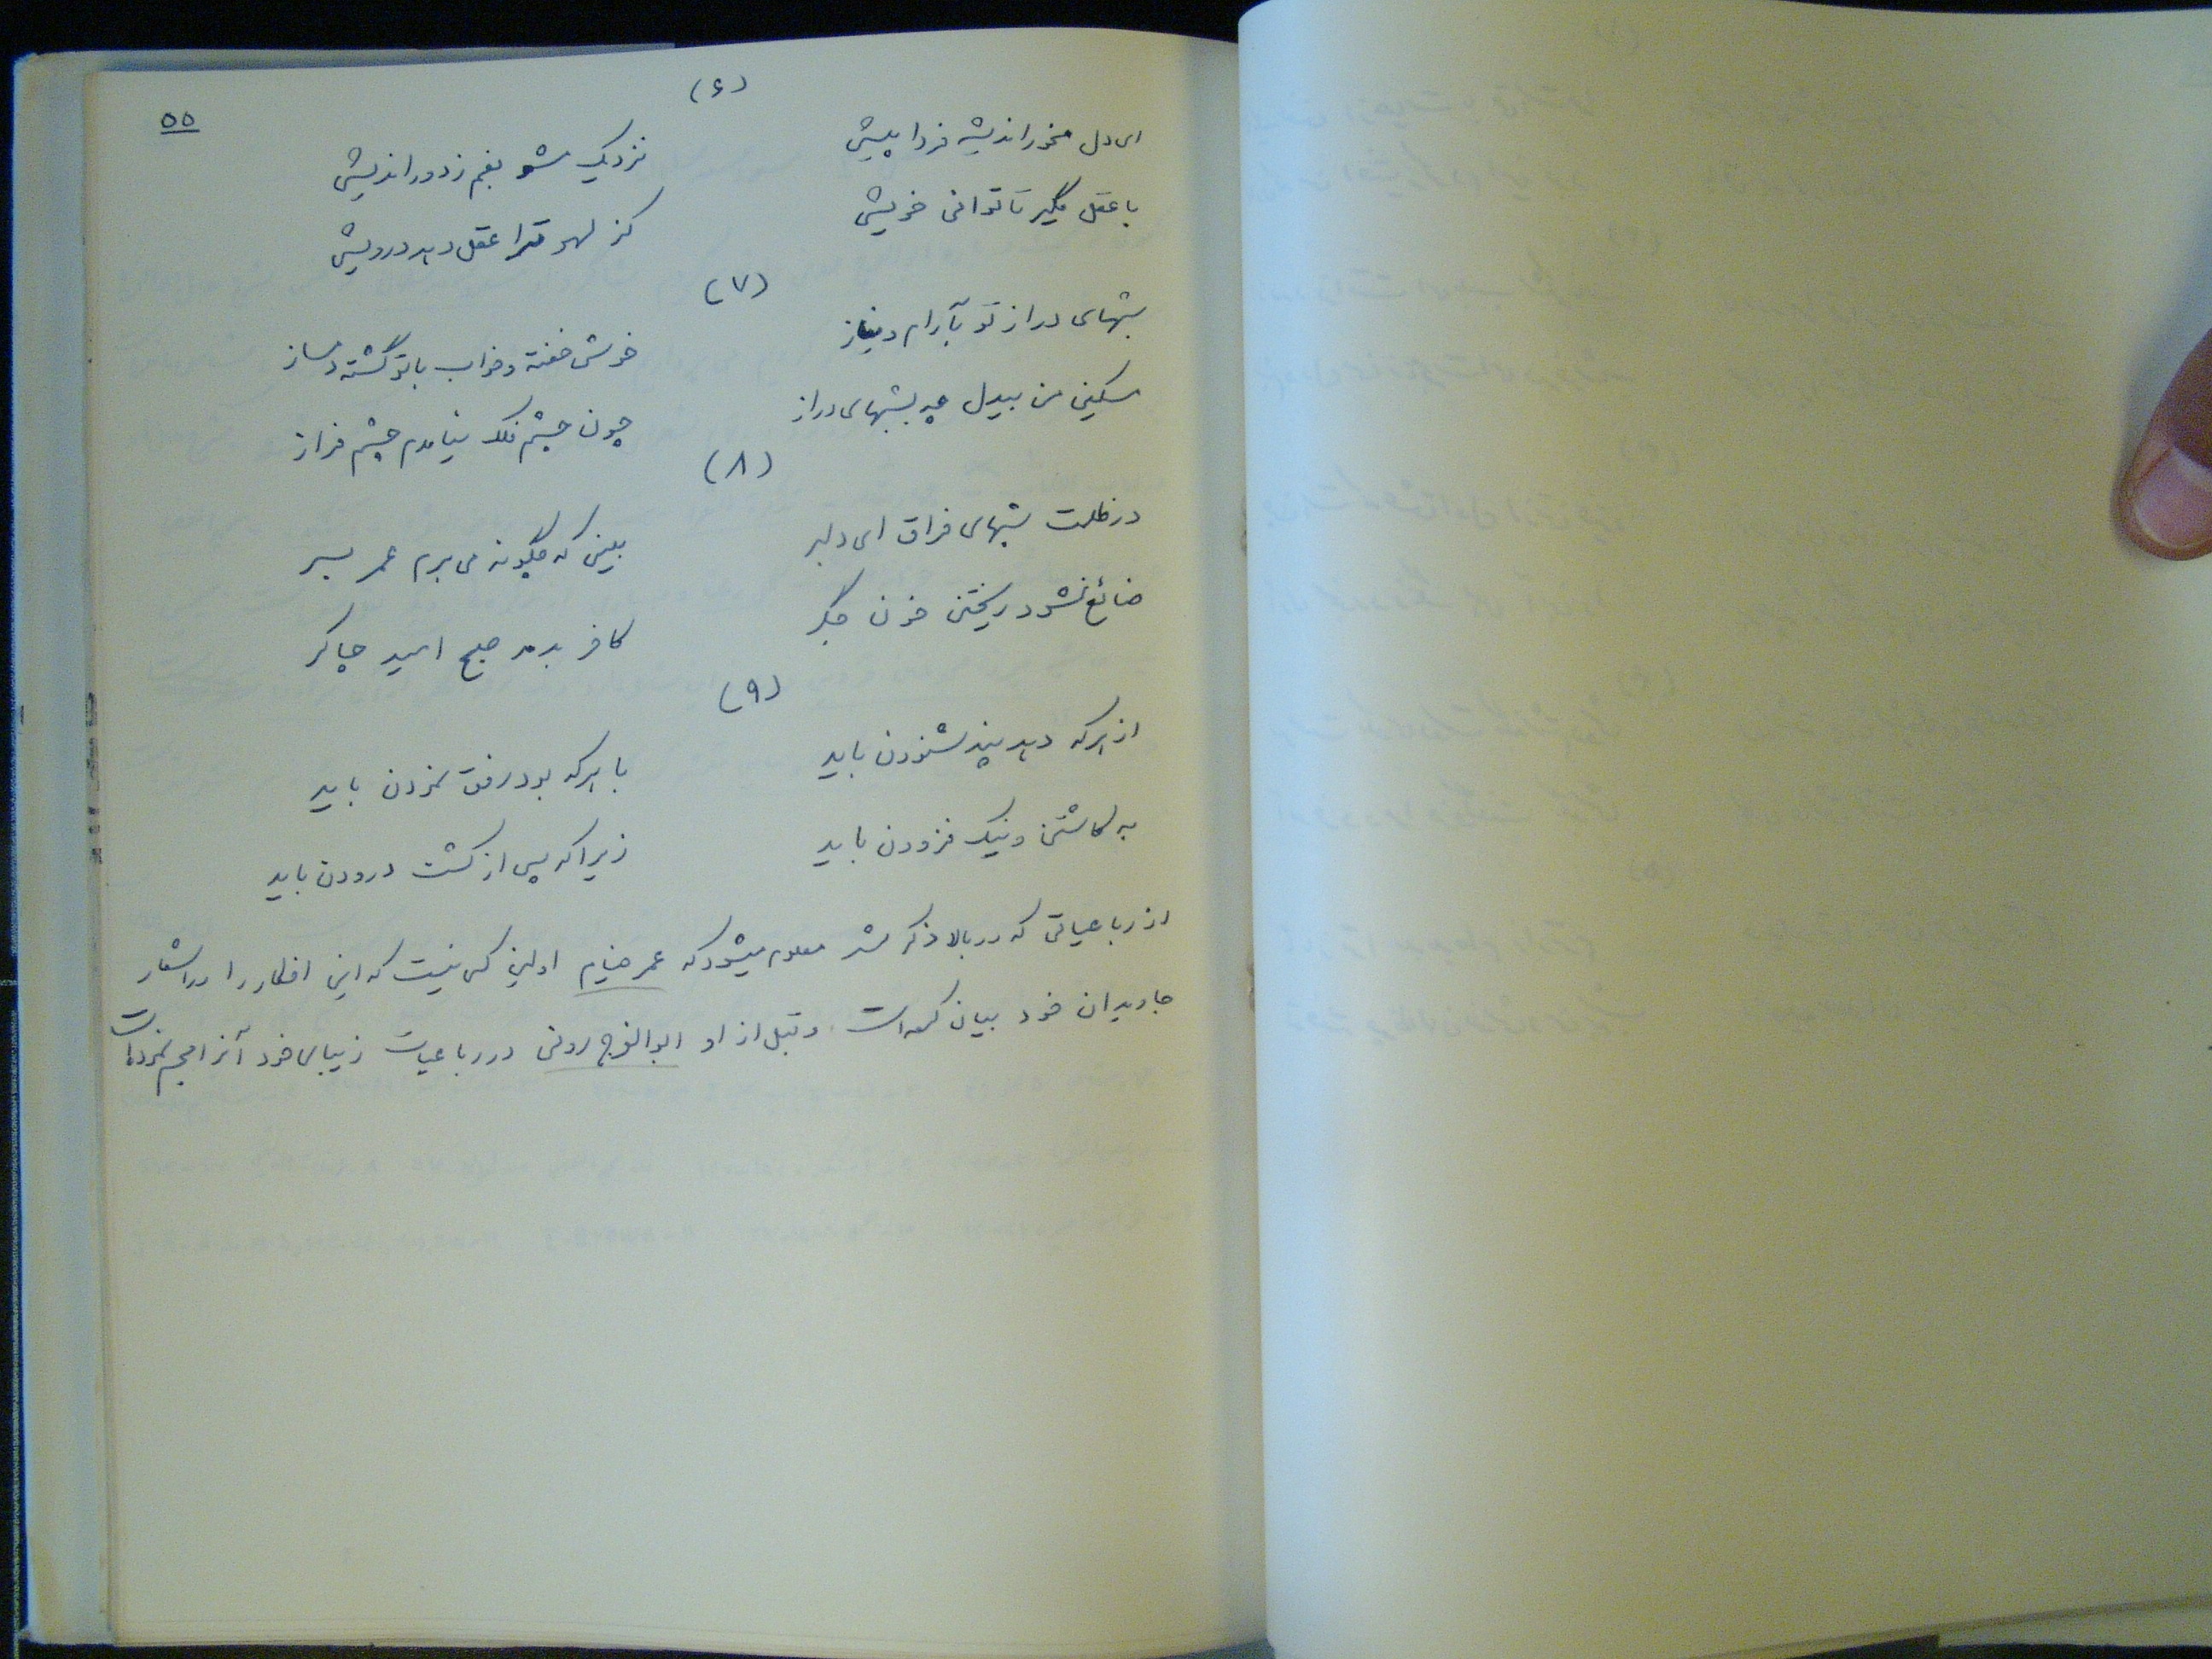 ۵۵
(۶)
ای دل مخور اندیشه فردا بپیش نزدیک مشو بغم ز دور اندیشی
با عقل مگیر تا توانی خویشی کز لهو ترا عقل دهد درویشی
(۷)
شبهای دراز تو بآرام و بناز خوش خفته و خواب با تو گشته دمساز
مسکین من بیدل چه بشبهای دراز چون چشم فلک نیامدم چشم فراز
(۸)
در ظلمت شبهای فراق ای دلبر بینی که چگونه می برم عمر بسر
ضائع نشود ریختن خون جگر کافر بدمد صبح امید چاکر
(۹)
از هرکه دهد پند شنودن باید با هرکه بود رفق نمودن باید
بد کاستن و نیک فزودن باید زیرا که پس از کشت درودن باید
از رباعیاتی که در بالا ذکر شد معلوم میشود که عمر خیام اولین کسی نیست که این افکار را در اشعار
جاویدان خود بیان کرده است، و قبل از او ابوالفرج رونی در رباعیات زیبای خود آنرا